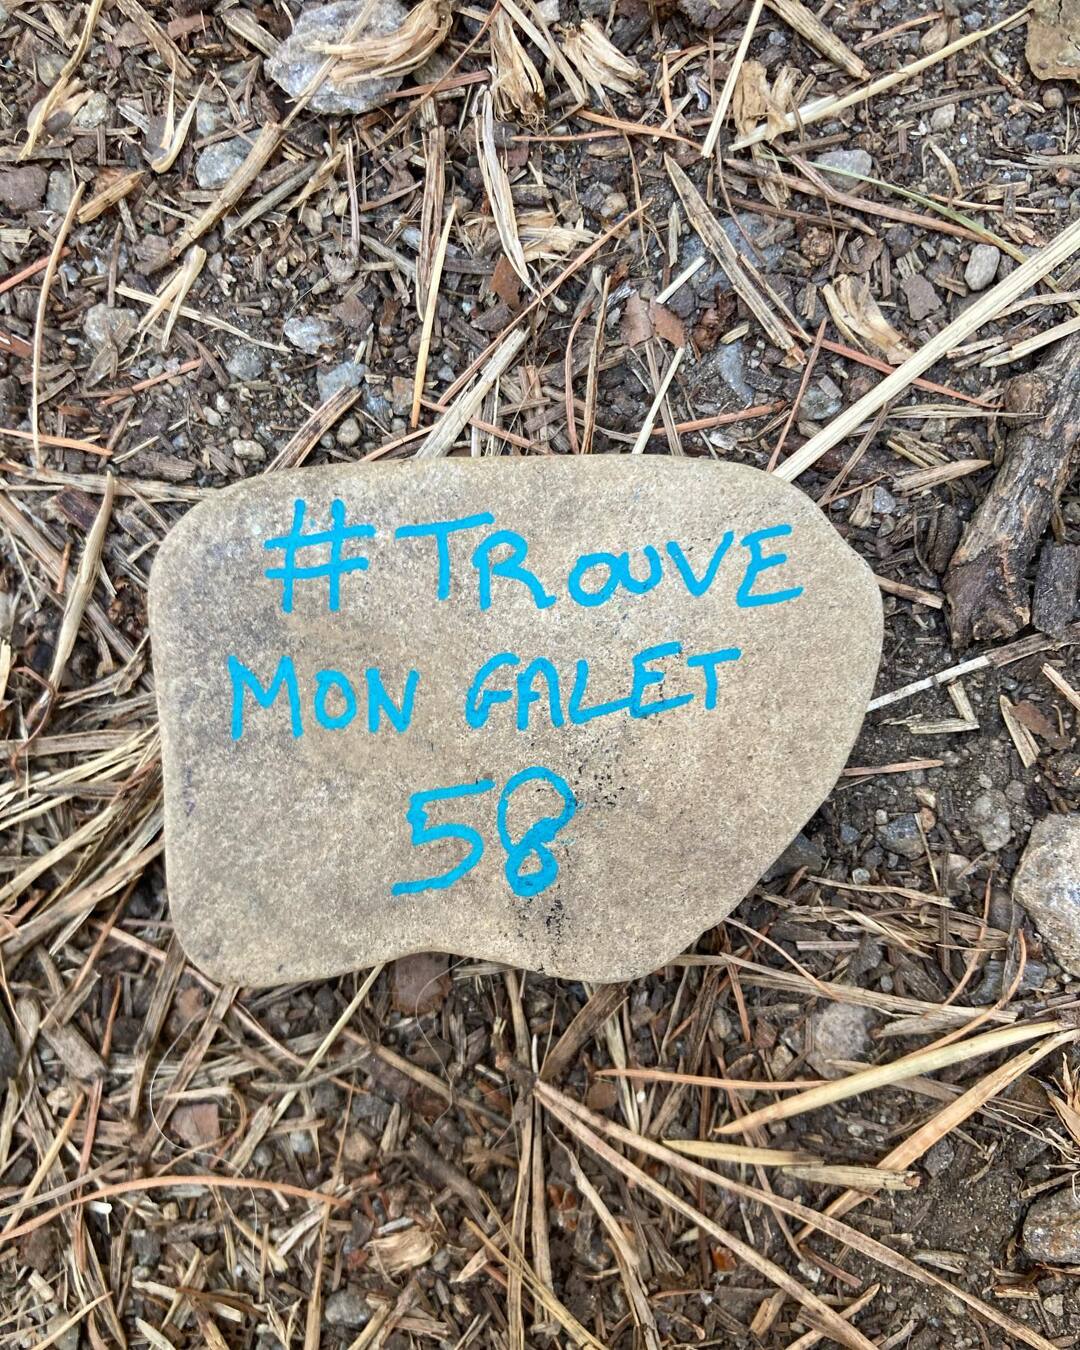 # TROUVE
MON GALET
58